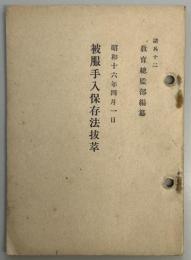 教育總監部編纂
昭和十六年四月一日
被服手入保存法抜萃